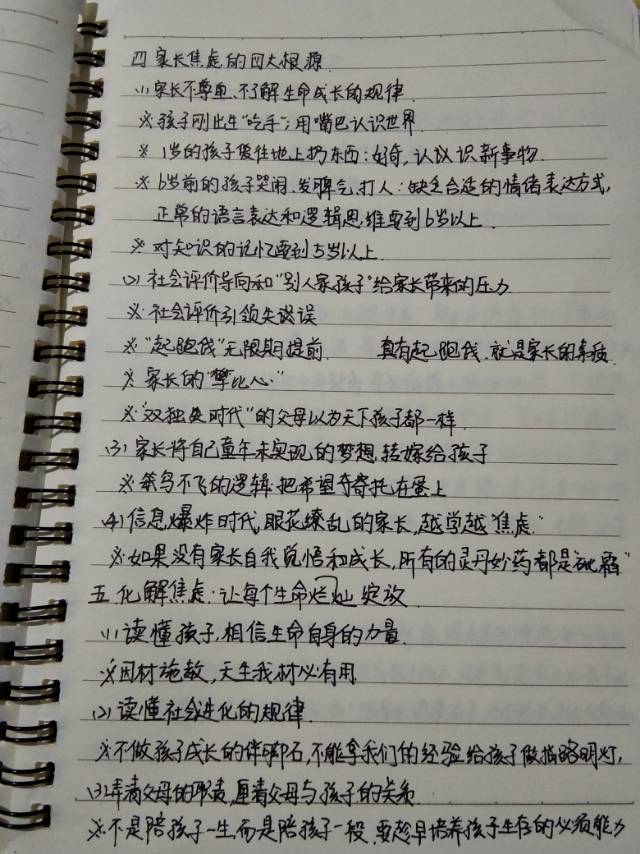 四 家长焦虑的四大根源
(1) 家长不尊重、不了解生命成长的规律
※ 孩子刚出生"吃手":用嘴巴认识世界
※ 1岁的孩子爱往地上扔东西:好奇、认识新事物
※ 6岁前的孩子哭闹、发脾气、打人:缺乏合适的情绪表达方式,
正常的语言表达和逻辑思维要到6岁以上
※ 对知识的记忆要到5岁以上
(2) 社会评价导向和"别人家孩子"给家长带来的压力
※ 社会评价引领失误
※ "起跑线"无限期提前 真有起跑线,就是家长的素质
※ 家长的"攀比心"
※ "双独类时代"的父母以为天下孩子都一样
(3) 家长将自己童年未实现的梦想,转嫁给孩子
※ 笨鸟不飞的逻辑:把希望寄托在蛋上
(4) 信息爆炸时代,眼花缭乱的家长,越学越"焦虑"
※ 如果没有家长自我觉悟和成长,所有的灵丹妙药都是
五 化解焦虑:让每个生命灿烂绽放
(1) 读懂孩子,相信生命自身的力量
※ 因材施教,天生我材必有用
(2) 读懂社会进化的规律
※ 不做孩子成长的绊脚石,不能拿我们的经验给孩子做指路明灯,
(3) 弄清父母的职责,厘清父母与孩子的关系
※ 不是陪孩子一生,而是陪孩子一段,要趁早培养孩子生存的必须能力